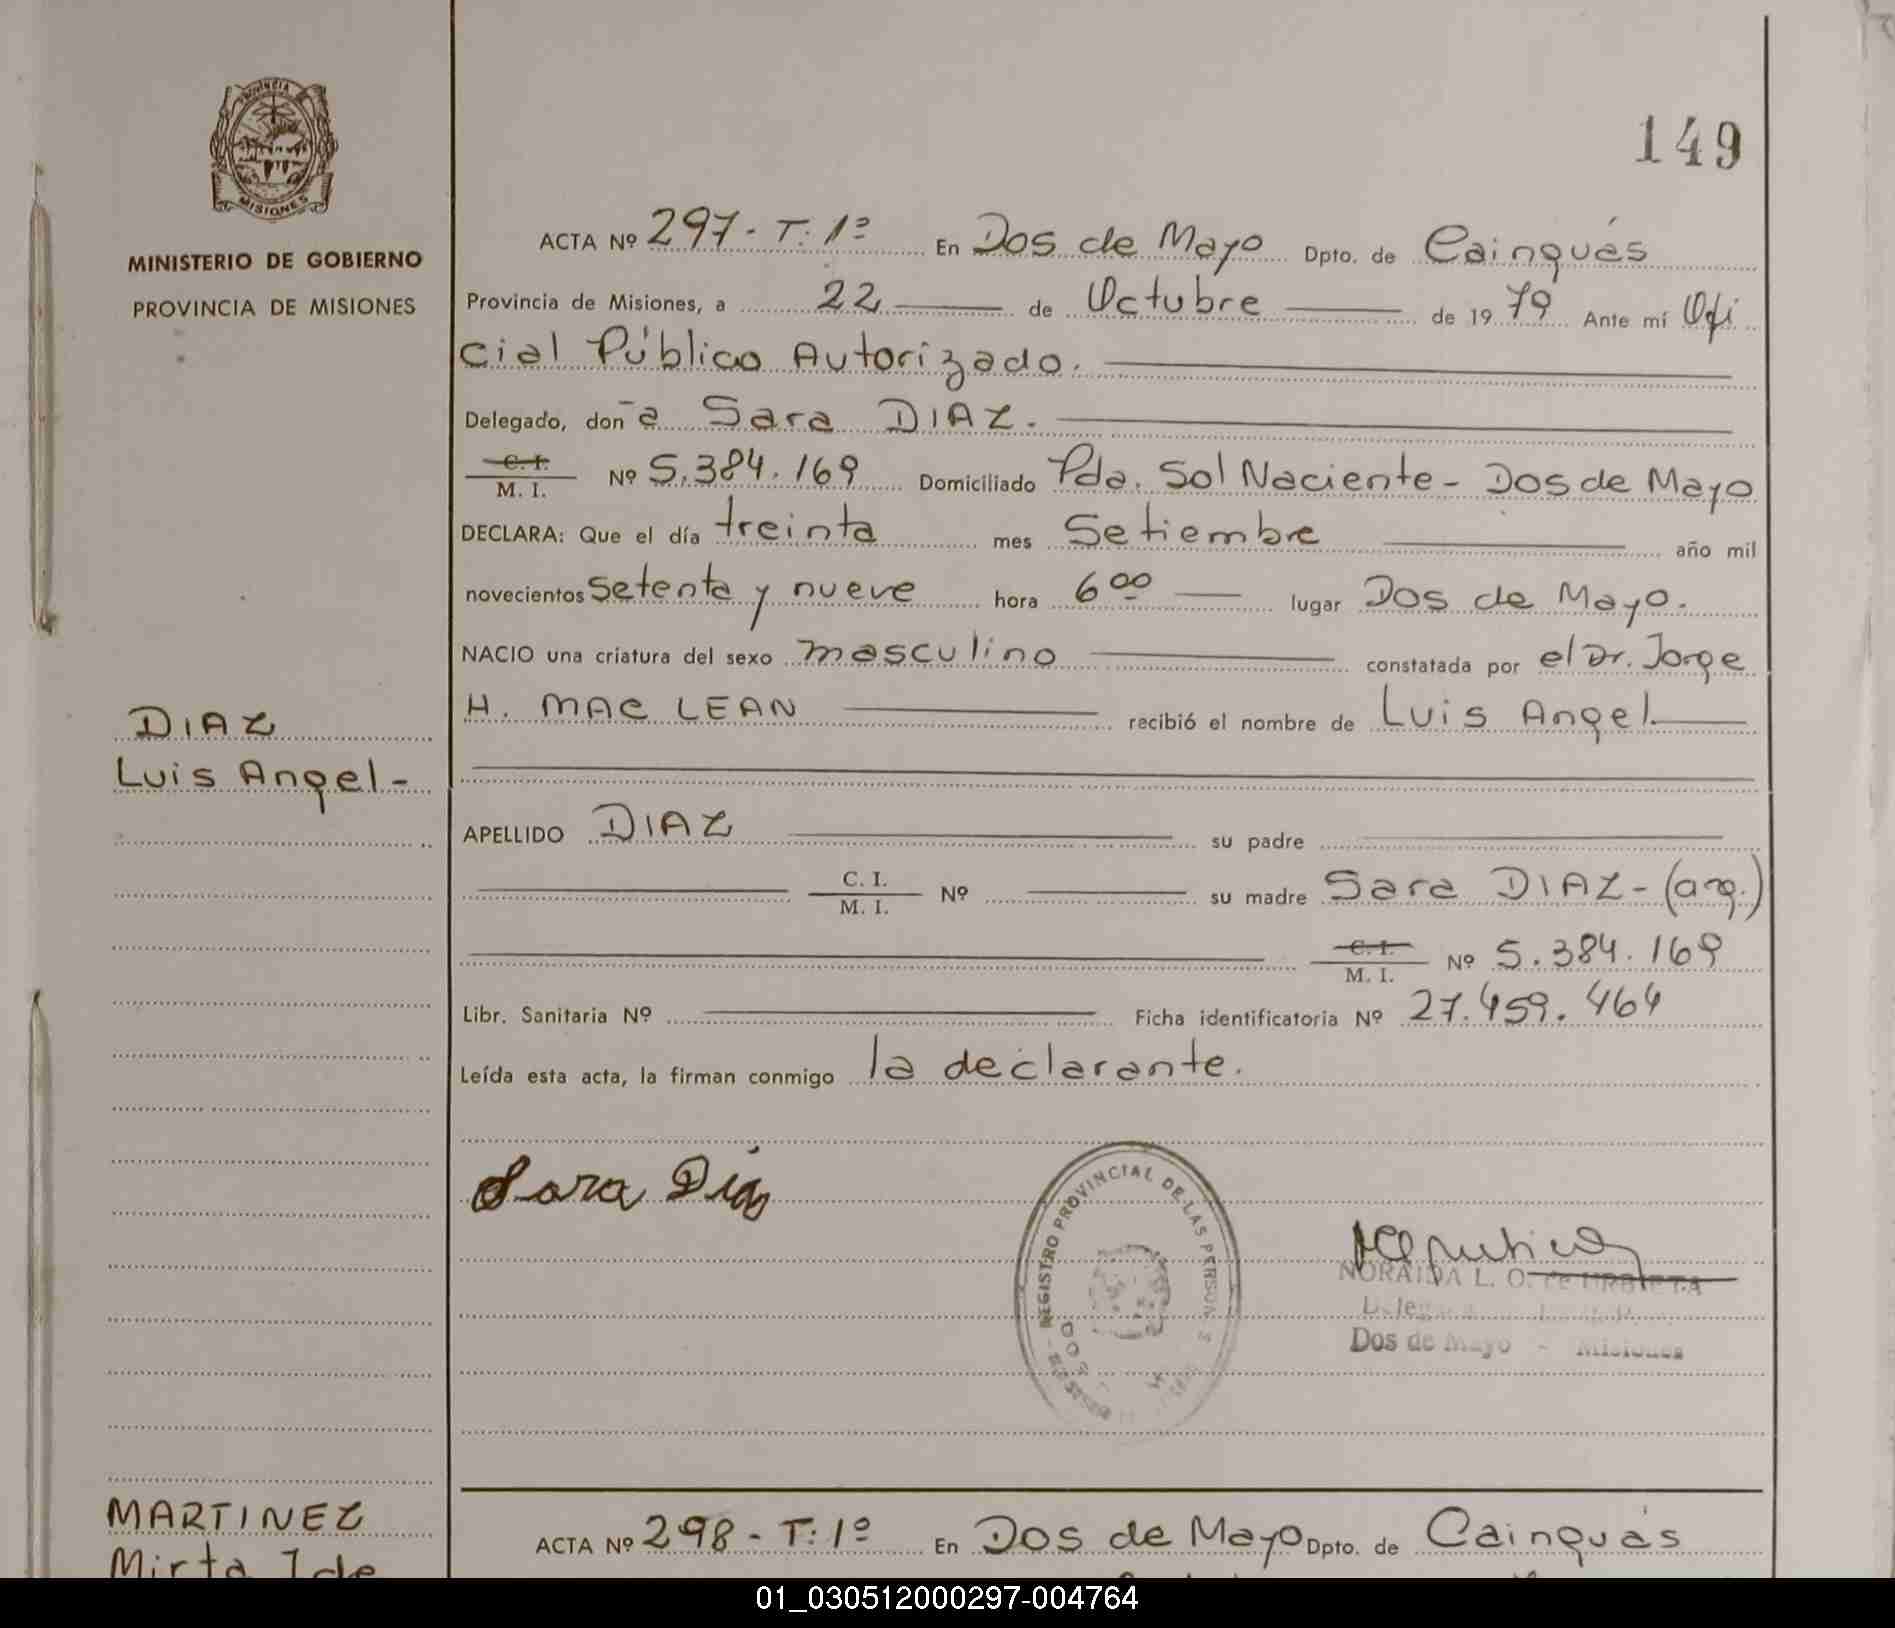 PROVINCIA DE
MISIONES
MINISTERIO DE GOBIERNO
PROVINCIA DE MISIONES
149
ACTA Nº 297 - T: 1º En Dos de Mayo Dpto. de Cainguás
Provincia de Misiones, a 22 de Octubre de 1979 Ante mí Ofi
cial Público Autorizado.
Delegado, don̄a Sara DIAZ.
C. I.
M. I. Nº 5.384.169 Domiciliado Pda. Sol Naciente - Dos de Mayo
DECLARA: Que el día treinta mes Setiembre año mil
novecientos setenta y nueve hora 6 00 lugar Dos de Mayo.
NACIO una criatura del sexo masculino constatada por el Dr. Jorge
H. MAC LEAN recibió el nombre de Luis Angel.
DIAZ
Luis Angel -
APELLIDO DIAZ su padre
C. I.
M. I. Nº su madre Sara DIAZ - (arg.)
C. I.
M. I. Nº 5.384.169
Libr. Sanitaria Nº Ficha identificatoria Nº 27.459.464
Leída esta acta, la firman conmigo la declarante.
Sara Diaz
REGISTRO PROVINCIAL DE LAS PERSON
NORAIDA L. O. de URBIETA
Dos de Mayo - Misiones
MARTINEZ
Mirta
ACTA Nº 298 - T: 1º En Dos de Mayo Dpto. de Cainguás
01_030512000297-004764